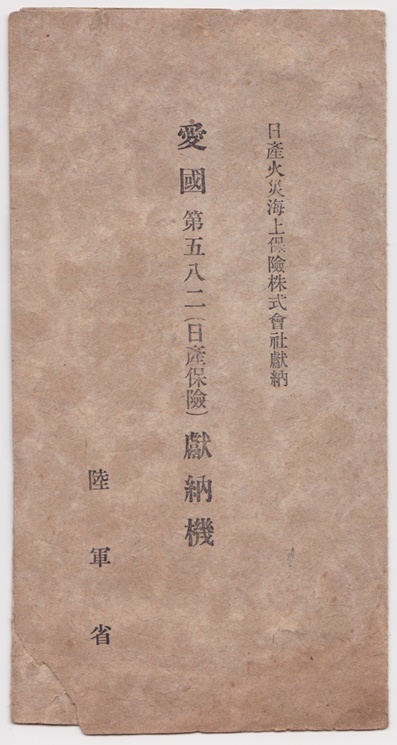 日產火災海上保險株式會社獻納
愛國第五八二（日產保險）獻納機
陸軍省